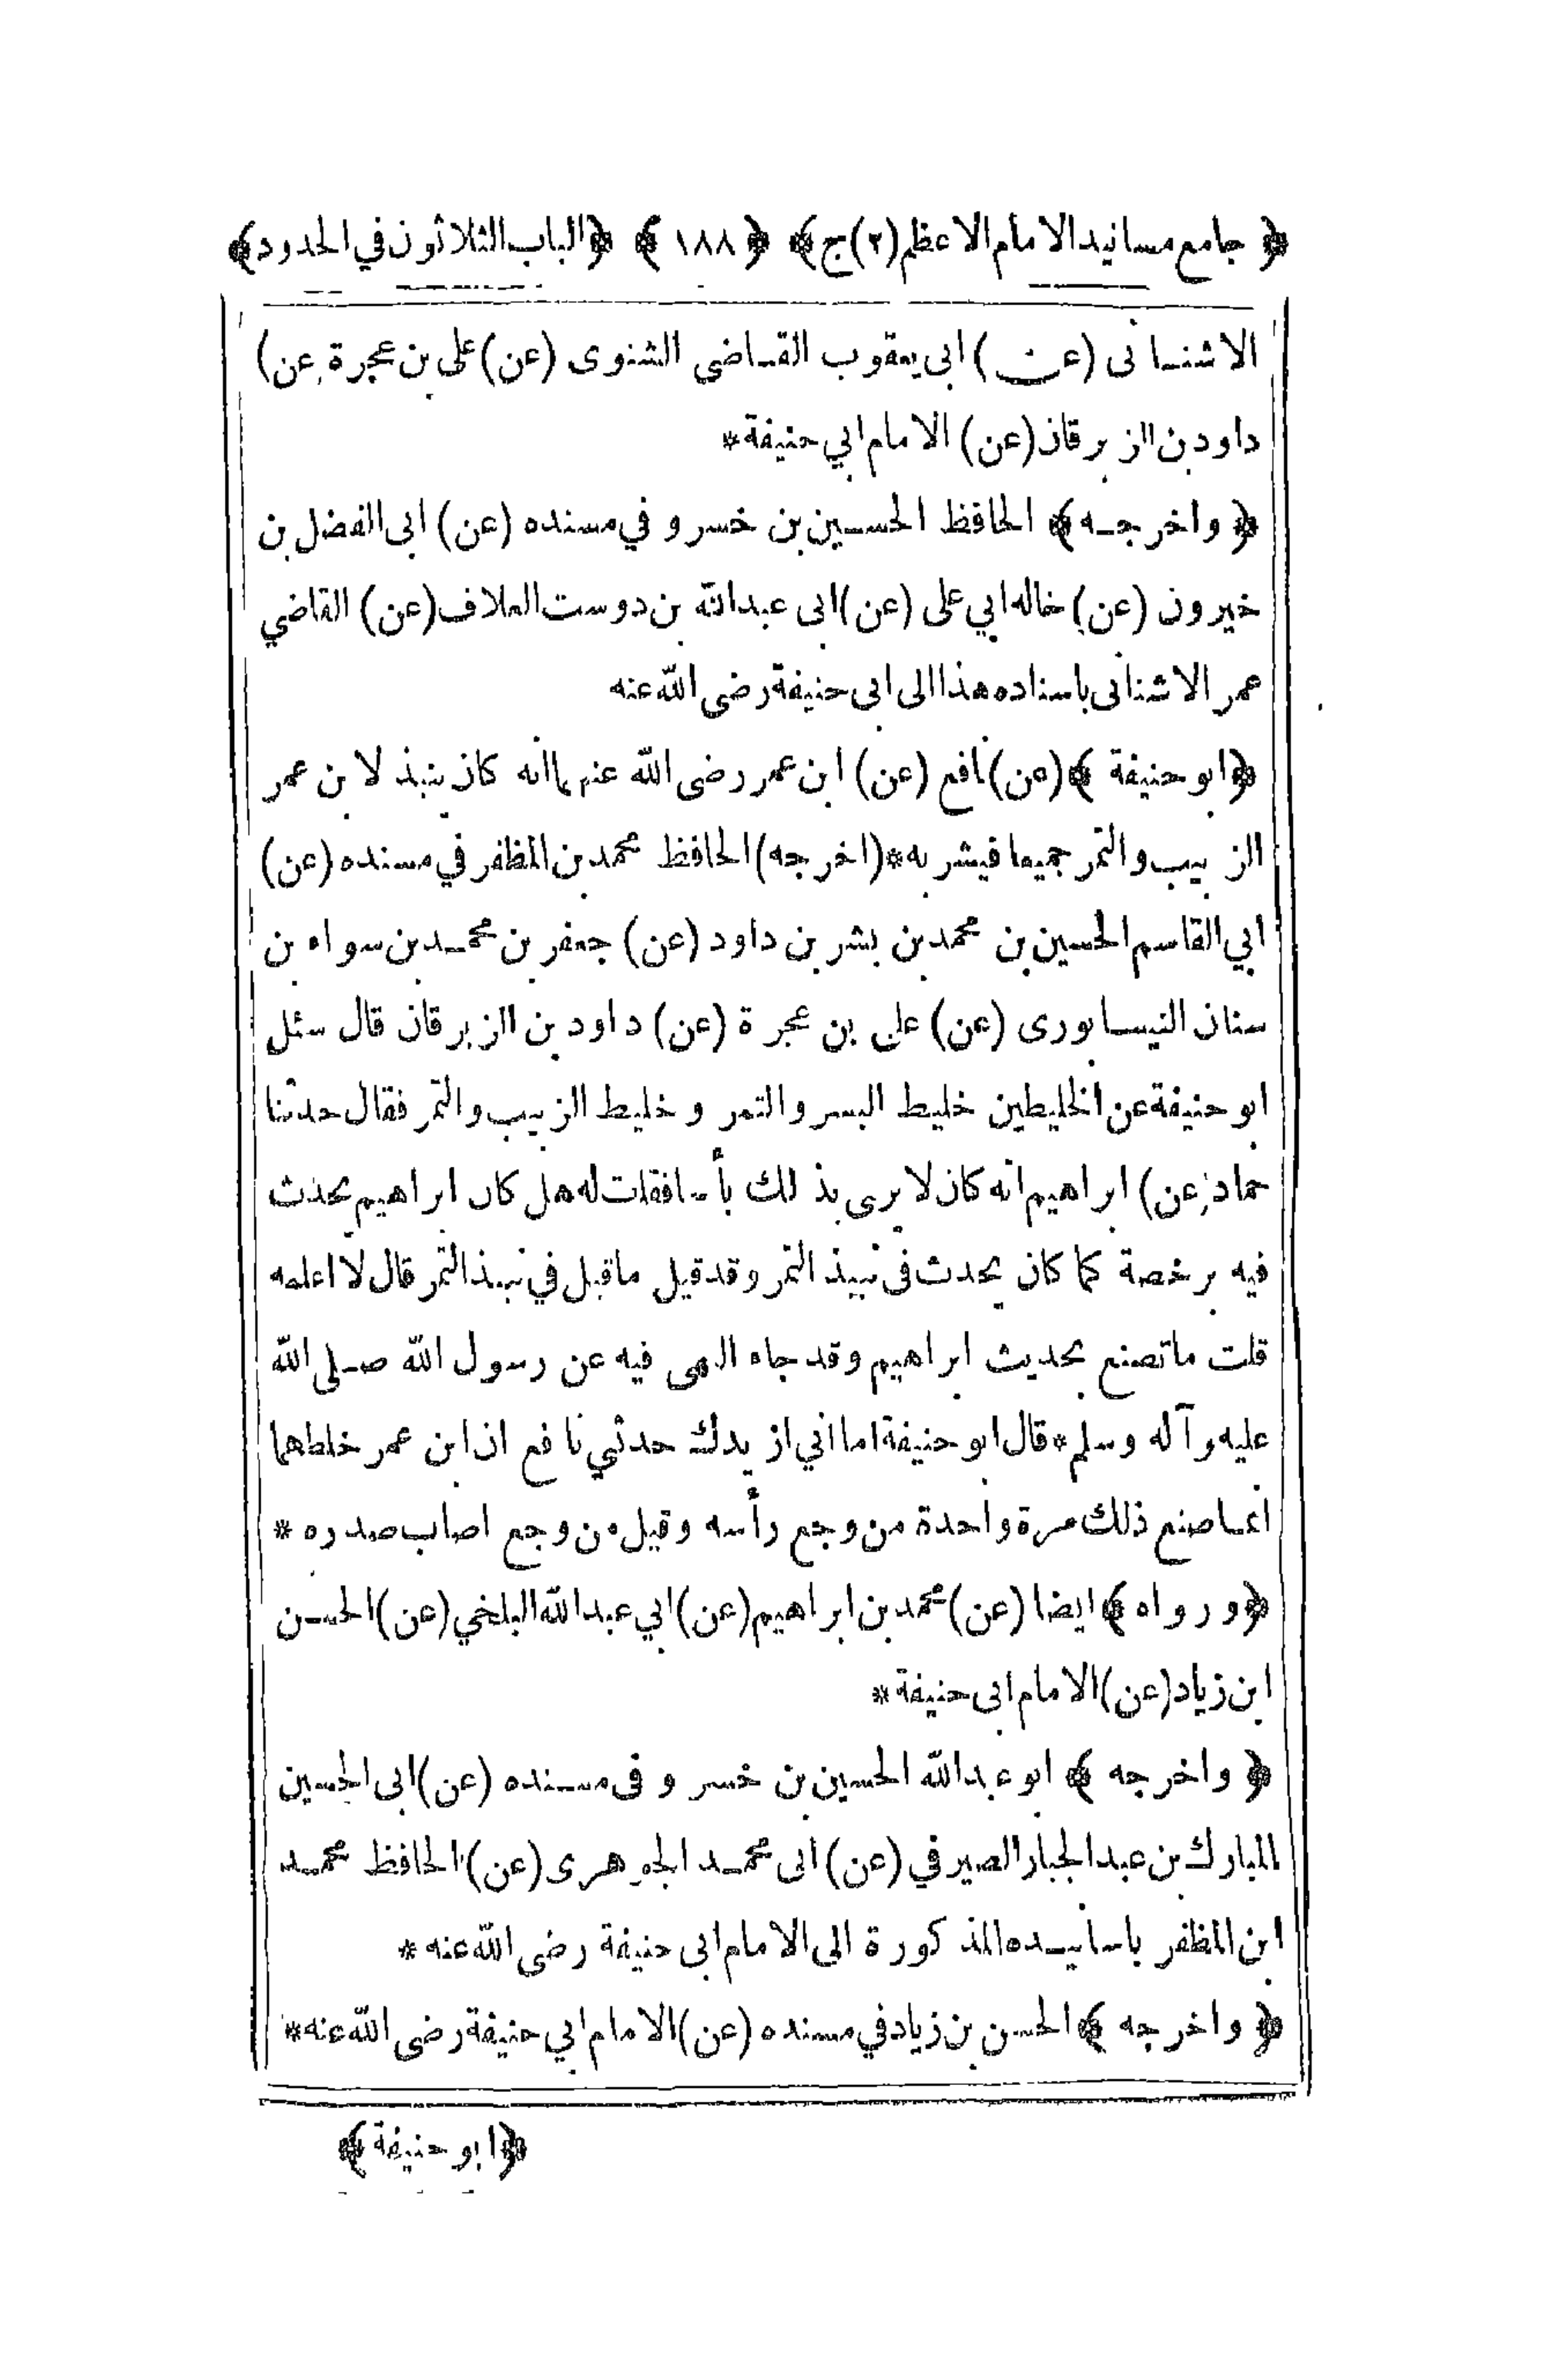 ﴿ جامع مسانيد الامام الاعظم (٢) ج ﴾ ﴿ ١٨٨ ﴾ ﴿ الباب الثلاثون في الحدود ﴾
الاشنانى (عن) ابى يعقوب القاضى الشنوى (عن) على بن عجرة (عن)
داود بن الزبرقان (عن) الامام ابي حنيفة *
﴿ واخرجه ﴾ الحافظ الحسين بن خسرو في مسنده (عن) ابى الفضل بن
خيرون (عن) خاله ابي على (عن) ابى عبدالله بن دوست العلاف (عن) القاضي
عمر الاشنانى باسناده هذا الى ابى حنيفة رضى الله عنه
﴿ ابو حنيفة ﴾ (عن) نافع (عن) ابن عمر رضى الله عنهما انه كان ينبذ لابن عمر
الزبيب والتمر جميعا فيشربه * (اخرجه) الحافظ محمد بن المظفر في مسنده (عن)
ابي القاسم الحسين بن محمد بن بشر بن داود (عن) جعفر بن محمد بن سواه بن
سنان النيسابورى (عن) على بن عجرة (عن) داود بن الزبرقان قال سئل
ابو حنيفة عن الخليطين خليط البسر والتمر وخليط الزبيب والتمر فقال حدثنا
حماد (عن) ابراهيم انه كان لا يرى بذلك بأسا فقلت له هل كان ابراهيم يحدث
فيه برخصة كما كان يحدث فى نبيذ التمر وقد قيل ما قيل في نبيذ التمر قال لا اعلمه
قلت ما تصنع بحديث ابراهيم وقد جاه النهى فيه عن رسول الله صلى الله
عليه وآله وسلم * قال ابو حنيفة اما اني ازيدك حدثني نافع ان ابن عمر خلطهما
انما صنع ذلك مرة واحدة من وجع رأسه وقيل من وجع اصاب صدره *
﴿ ورواه ﴾ ايضا (عن) محمد بن ابراهيم (عن) ابي عبدالله البلخي (عن) الحسن
ابن زياد (عن) الامام ابى حنيفة *
﴿ واخرجه ﴾ ابو عبدالله الحسين بن خسرو فى مسنده (عن) ابى الحسين
المبارك بن عبدالجبار الصيرفي (عن) ابى محمد الجوهرى (عن) الحافظ محمد
ابن المظفر باسانيده المذكورة الى الامام ابى حنيفة رضى الله عنه *
﴿ واخرجه ﴾ الحسن بن زياد في مسنده (عن) الامام ابي حنيفة رضى الله عنه *
﴿ ابو حنيفة ﴾